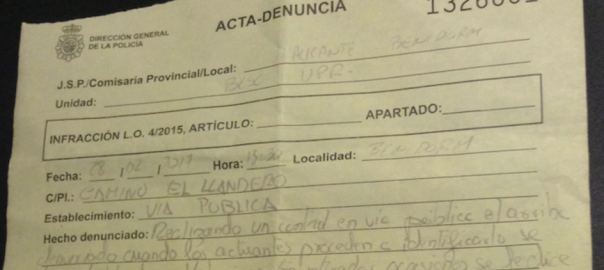 DIRECCIÓN GENERAL
DE LA POLICÍA
ACTA-DENUNCIA
J.S.P./Comisaría Provincial/Local: ALICANTE BENIDORM
Unidad: UPR-
INFRACCIÓN L.O. 4/2015, ARTÍCULO: APARTADO:
Fecha: 02 Hora: Localidad: BENIDORM
C/Pl.: CAMINO EL LLANDERO
Establecimiento: VIA PUBLICA
Hecho denunciado: Realizando un control en via publica el arriba
cuando los actuantes proceden a identificarlo se